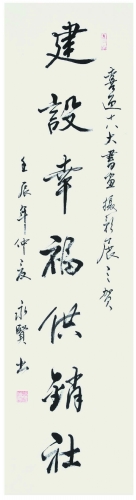 喜迎十八大书画摄影展之贺
建設幸福供銷社
壬辰年仲夏
永賢书